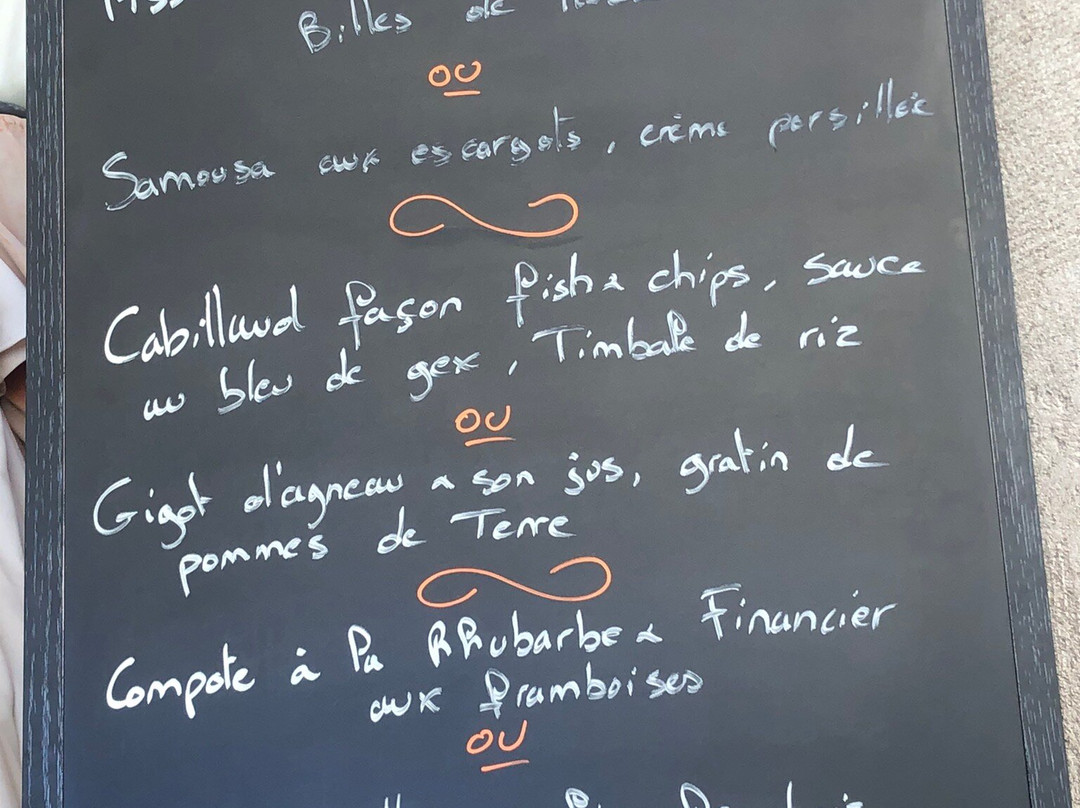 Billes de
OU
Samousa aux escargots, crème persillée
Cabillaud façon fish & chips, sauce
au bleu de gex, Timbale de riz
OU
Gigot d'agneau a son jus, gratin de
pommes de Terre
Compote à la Rhubarbe & Financier
aux framboises
OU